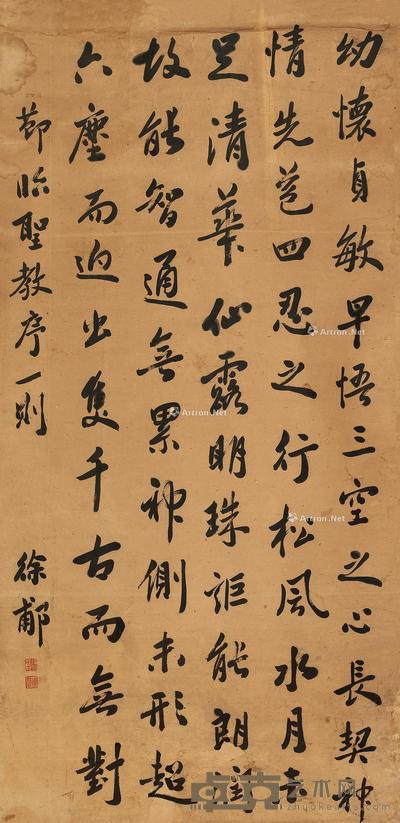 幼懷貞敏早悟三空之心長契神
情先苞四忍之行松風水月未
足清華仙露明珠詎能朗潤
故能智通無累神測未形超
六塵而迥出隻千古而無對
節臨聖教序一則
徐郙
Artron.Net
Artron.Net
Artron.Net
Artron.Net